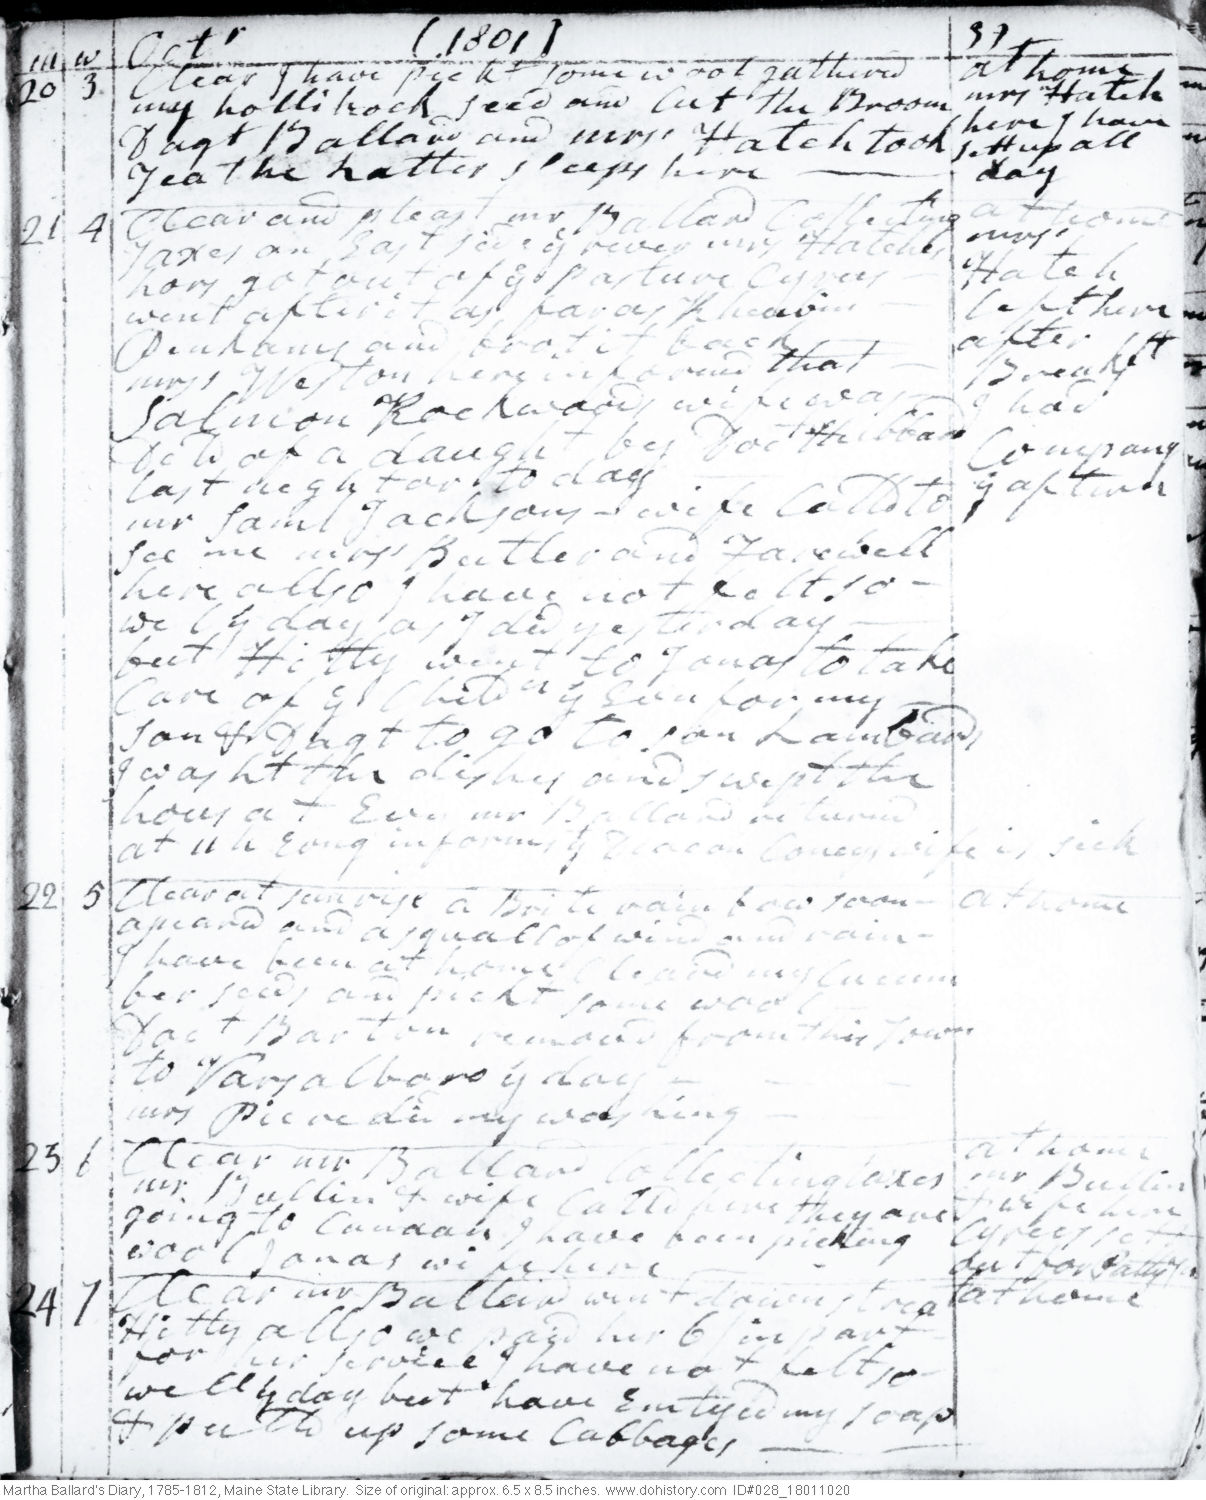 m w Octr (1801) 37
20 3 Clear I have pickt some wool gathered
my hollihock seed and Cut the Broom
Dagt Ballard and mrs Hatch took
Tea the hatter sleeps here
at home
mrs Hatch
here I have
sett up all
day
21 4 Clear and pleast mr Ballard Collecting
Taxes on East side ye river mrs Hatches
hors got out of ye Pasture Cyrus
went after it as far as
Denhams and brot it back
mrs Weston here informd that
Salmon Rockwoods wife was
Deld of a daught by Doct Hubbard
last night or to day
mr Saml Jacksons wife Calld to
see me mrs Butler and Farewell
here allso I have not felt so
well ye day as I did yesterday
but Hitty went to Jonas to take
Care of ye Childn ye Evn for my
son & Dagt to go to son Lambards
I washt the dishes and swept the
hous at Evn mr Ballard returnd
at 11 h Evng informs ye Deacon Coneys wife is sick
at home
mrs
Hatch
left here
after
Breakft
I had
Company
ye aftern
22 5 Clear at sunrise a Brite rain bow soon
apeard and a squall of wind and rain
I have been at home Cleand my Cucum
ber seeds and pickt some wool
Doct Barton removd from this Town
to Varsalboro ye day
mrs Pierce did my washing
at home
23 6 Clear mr Ballard Collecting taxes
mr Bullin & wife Calld here they are
going to Canaan I have been picking
wool Jonas wife here
at home
mr Bullin
& wife here
Cyrus sett
out for Patty
24 7 Clear mr Ballard went down strea
Hitty allso we paid her 6/ in part
for her service I have not felt so
well ye day but have Emtyed my soap
& pulld up some Cabbages
at home
Martha Ballard's Diary, 1785-1812, Maine State Library. Size of original: approx. 6.5 x 8.5 inches. www.dohistory.com ID#028_18011020